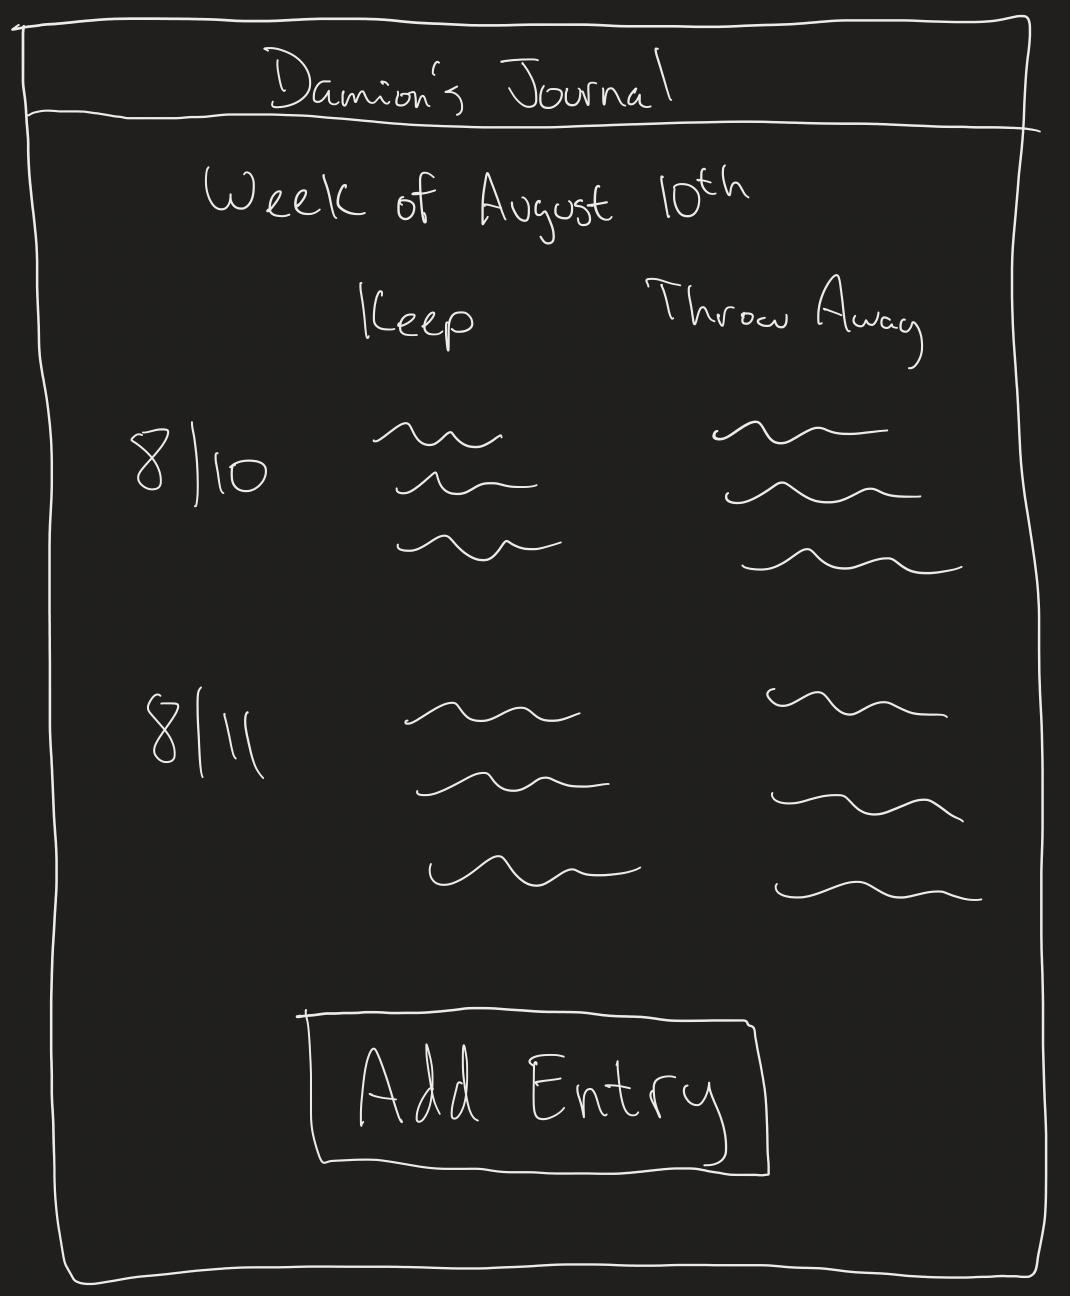 Damion's Journal
Week of August 10th
Keep Throw Away
8/10
8/11
Add Entry